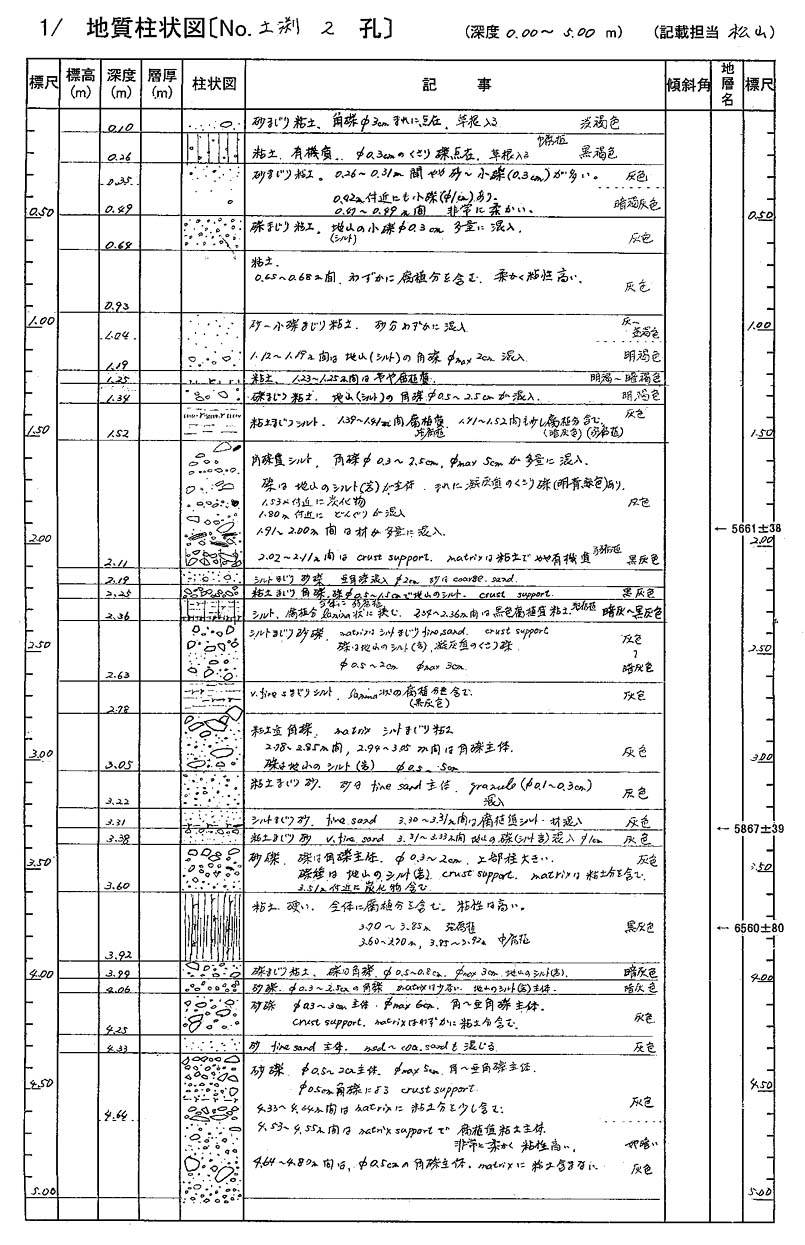 1/ 地質柱状図〔No. 土渕 2 孔〕 (深度 0.00～5.00 m) (記載担当 松山)
標尺 標高(m) 深度(m) 層厚(m) 柱状図 記事 傾斜角 地層名 標尺
0.10 砂まじり粘土、角礫φ3cmまれに点在、草根入る 淡褐色
0.26 粘土、有機質、φ0.3cmのくさり礫点在、草根入る 黒褐色
0.35 砂まじり粘土。0.26～0.31m間やや砂～小礫(0.3cm)が多い。 灰色
0.42m付近にも小礫(φ1cm)あり。
0.50 0.49 0.47～0.49m間 非常に柔かい。 暗褐灰色 0.50
0.64 礫まじり粘土。地山の小礫φ0.3cm多量に混入。 灰色
(シルト)
粘土。
0.65～0.68m間、わずかに腐植分を含む。柔かく粘性高い。 灰色
0.93
1.00 1.04 砂～小礫まじり粘土。砂分わずかに混入 1.00
1.19 1.12～1.19m間は地山(シルト)の角礫φmax 2cm混入。 明褐色
1.25 粘土、1.23～1.25m間はやや腐植質。 明褐～暗褐色
1.34 礫まじり粘土。地山(シルト)の角礫φ0.5～2.5cmが混入。 明褐色
1.50 1.52 粘土まじりシルト。1.39～1.41m間腐植質 1.41～1.52m間も少し腐植分含む。 灰色 1.50
(暗灰色)
角礫質シルト、角礫φ0.3～2.5cm, φmax 5cmが多量に混入。
礫は地山のシルト(古)が主体、まれに凝灰質のくさり礫あり。
1.53m付近に炭化物 灰色
1.80m付近にどんぐりが混入
1.91～2.00m間は材が多量に混入。 ← 5661±38
2.00 2.00
2.11 2.02～2.11m間は crust support. matrixは粘土でやや有機質 黒灰色
2.19 シルトまじり砂礫 亜角礫混入 φ2cm 砂はcoarse sand.
2.25 粘土まじり角礫、礫φ0.5～1.5cmで地山のシルト. crust support. 黒灰色
2.36 シルト、腐植分lamina状に挟む。2.34～2.36m間は黒色腐植質粘土 暗灰～黒灰色
2.50 シルトまじり砂礫、matrixはシルトまじりfine sand. crust support 灰色 2.50
礫は地山のシルト(古), 凝灰質のくさり礫. ～
2.63 φ0.5～2cm φmax 3cm. 暗灰色
2.78 v.fine sまじりシルト、lamina状の腐植分を含む。 灰色
(黒灰色)
粘土質角礫、matrix シルトまじり粘土
2.78～2.85m間, 2.94～3.05m間は角礫主体. 灰色
3.00 3.05 礫は地山のシルト(古) 3.00
3.22 粘土まじり砂. 砂はfine sand主体, granule(φ0.1～0.3cm) 灰色
混入
3.31 シルトまじり砂、fine sand 3.30～3.31m間は腐植質シルト・材混入 灰色
3.38 粘土まじり砂 v.fine sand 3.31～3.33m間 地山の礫(シルト古)混入 φ1cm 灰色 ← 5867±39
3.50 砂礫、礫は角礫主体. φ0.3～2cm, 上部程大きい. 灰色 3.50
礫種は地山のシルト(古). crust support. matrixは粘土分を含む.
3.60 3.51m付近に炭化物含む
粘土 硬い. 全体に腐植分を含む。粘性は高い。
3.70～3.85m 黒灰色 ← 6560±80
3.60～3.70m, 3.85～3.92m 中腐植
3.92
4.00 3.99 礫まじり粘土、礫は角礫. φ0.5～0.8cm. φmax 3cm. 地山のシルト(古). 暗灰色 4.00
4.06 砂礫. φ0.3～2.5cmの角礫 matrixは少ない. 地山のシルト(古)主体. 暗灰色
砂礫 φ0.3～3cm主体. φmax 6cm. 角～亜角礫主体.
4.25 crust support. matrixはわずかに粘土分含む. 灰色
4.33 砂 fine sand主体. med～coa.sandも混じる. 灰色
4.50 砂礫. φ0.5～2cm主体, φmax 5cm, 角～亜角礫主体. 4.50
φ0.5cm角礫による crust support.
4.64 4.33～4.64m間はmatrixに粘土分を少し含む. 灰色
4.53～4.55m間はmatrix supportで腐植質粘土主体
非常に柔かく粘性高い. やや暗い
4.64～4.80m間は, φ0.5cmの角礫主体. matrixに粘土含まない 灰色
5.00 5.00